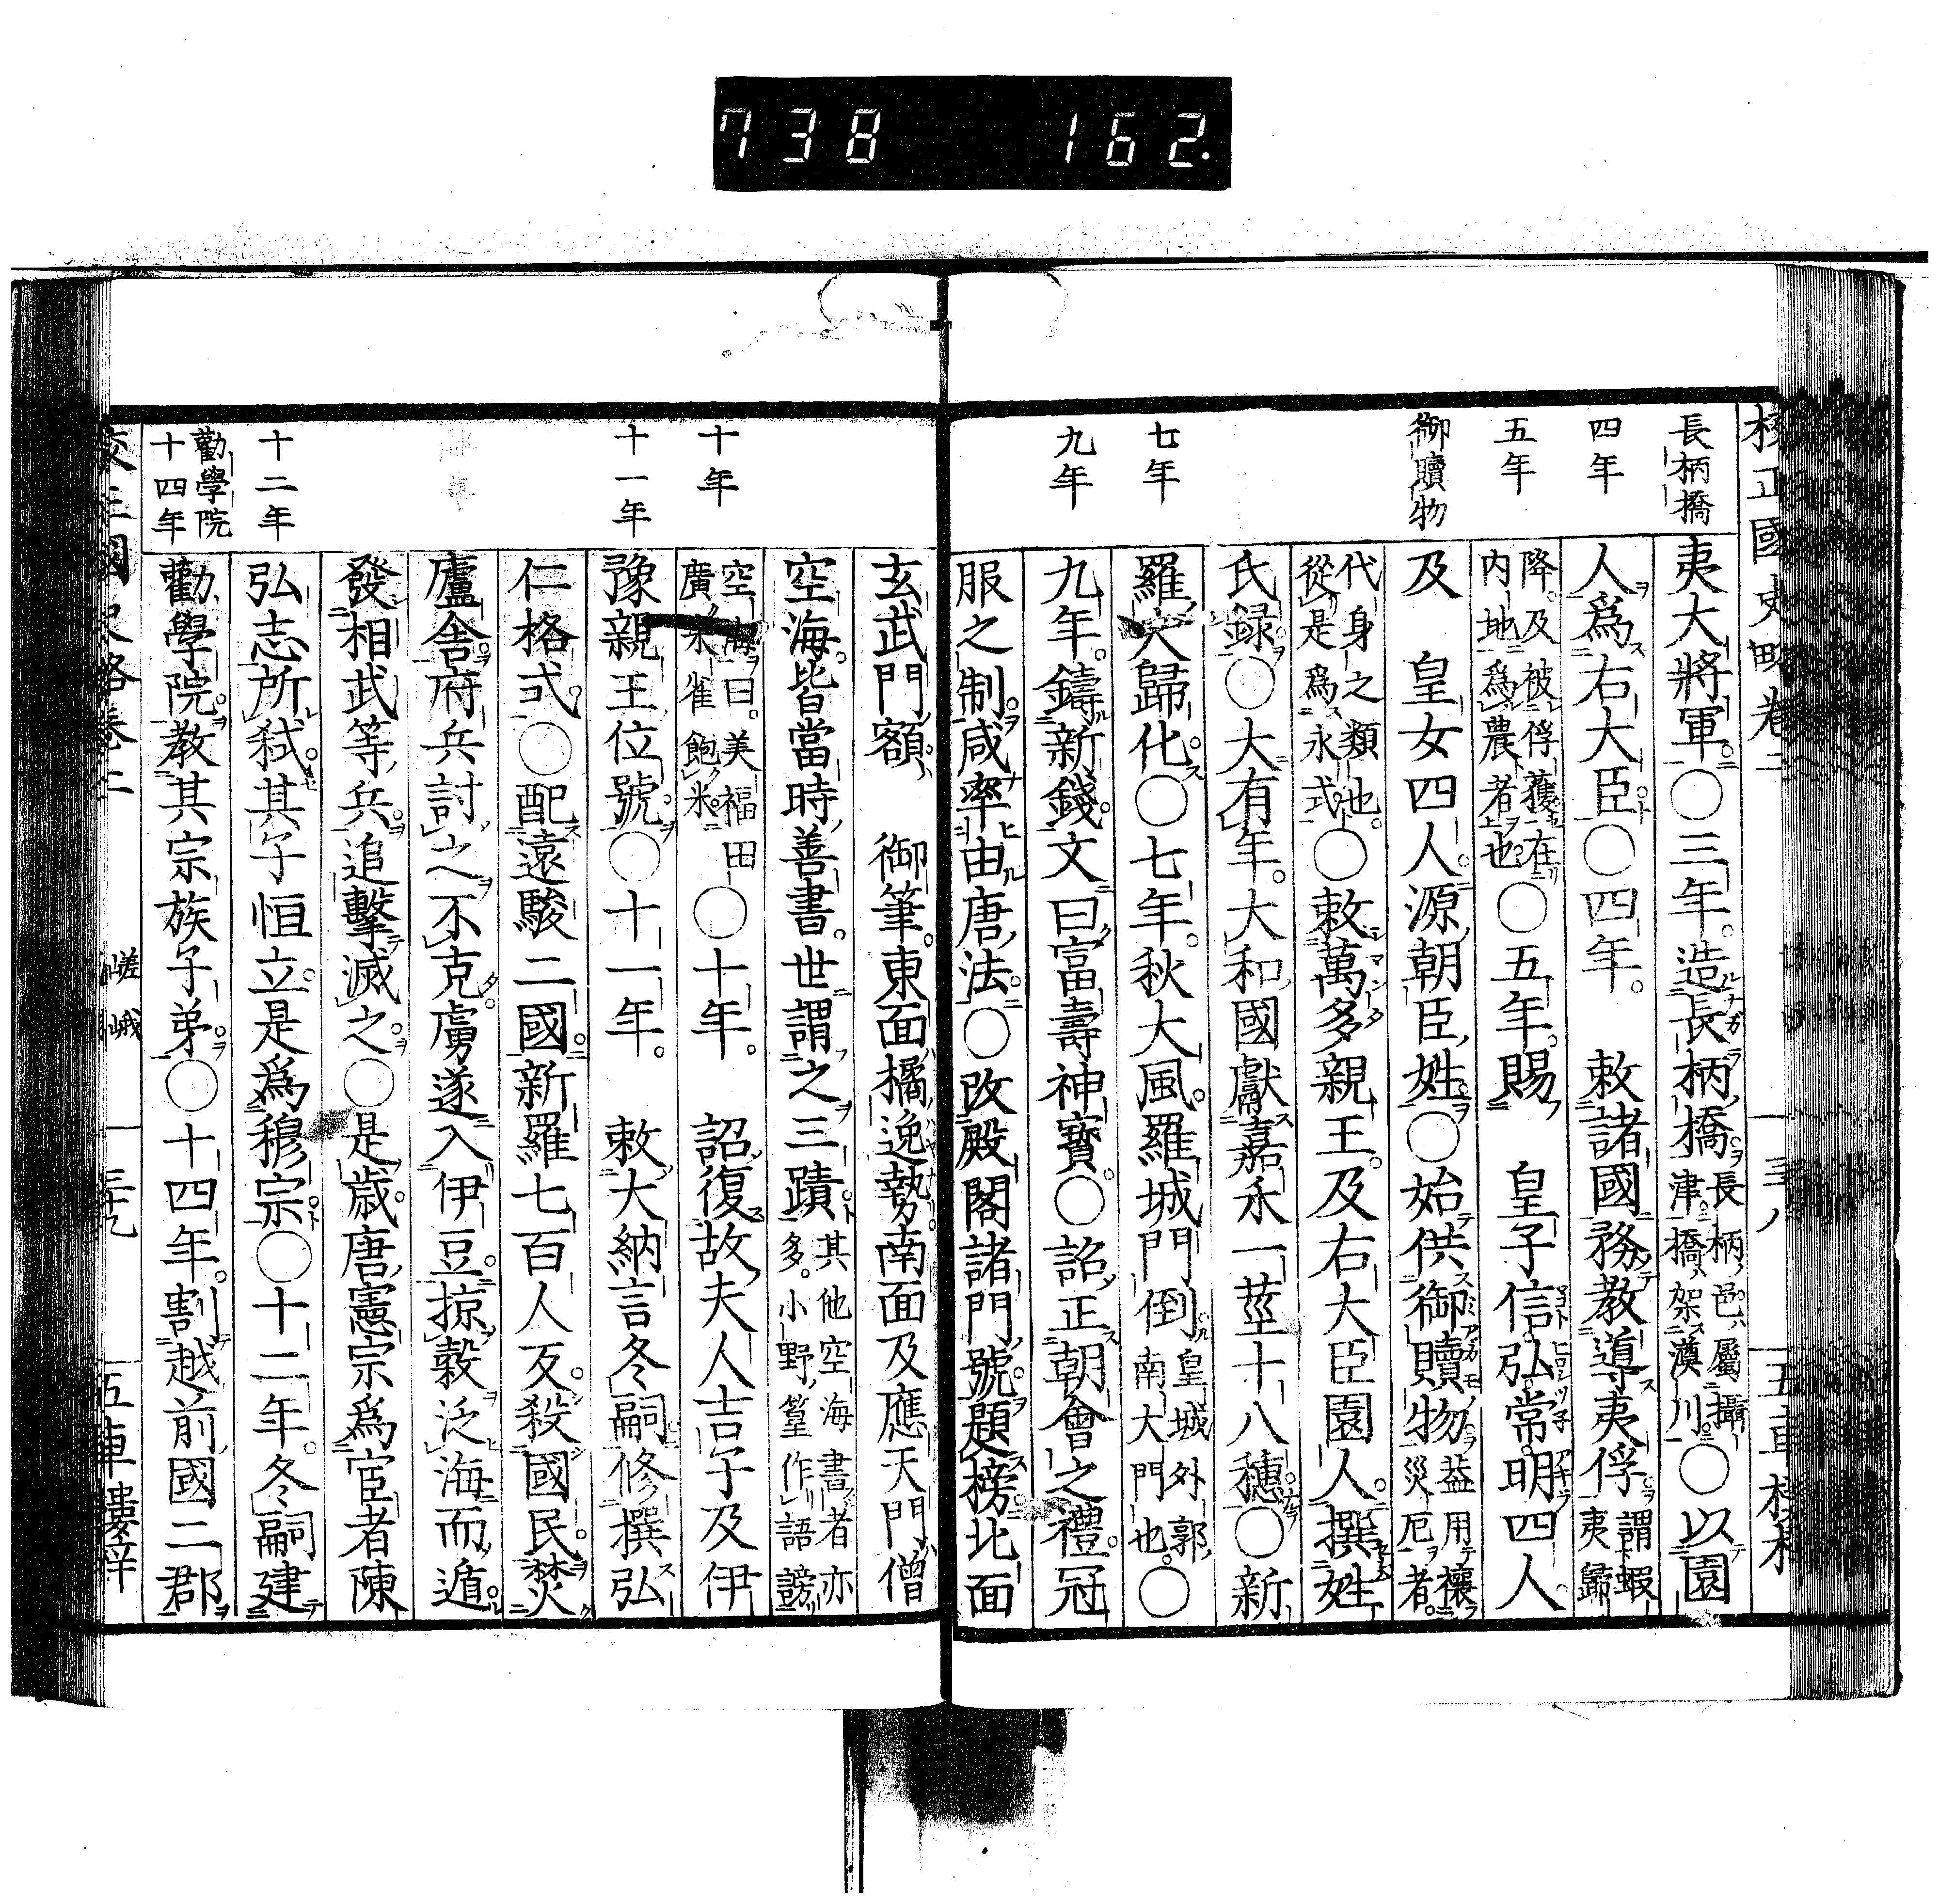 738 162.
長柄橋
四年
五年
御贖物
七年
九年
夷大將軍○三年。造長柄橋長柄邑屬攝津橋架濵川○以園
人爲右大臣○四年。 敕諸國務教導夷俘謂蝦夷歸
降。及被俘獲在内地爲農者也○五年。賜 皇子信。弘。常。明四人
及 皇女四人。源朝臣姓○始供御贖物葢用禳災厄者。
代身之類也。從是爲永式○敕萬多親王。及右大臣園人。撰姓
氏録○大有年。大和國獻嘉禾一莖十八穗○新
羅人歸化○七年。秋大風。羅城門倒皇城外郭南大門也。○
九年。鑄新錢。文曰富壽神寳。○詔正朝會之禮。冠
服之制。咸率由唐法○改殿閣諸門號。題榜。北面
十年
十一年
十二年
勸學院
十四年
玄武門額 御筆。東面橘逸勢。南面及應天門僧
空海。皆當時善書。世謂之三蹟其他空海書者亦多。小野篁作語謗
空海曰。美福田廣朱雀飽米。○十年。 詔復故夫人吉子及伊
豫親王位號○十一年。 敕大納言冬嗣修撰弘
仁格式○配遠駿二國新羅七百人反。殺國民。焚
廬舎府兵討之不克。虜遂入伊豆。掠穀泛海而遁。
發相武等兵。追擊滅之。○是歳。唐憲宗爲宦者陳
弘志所弑。其子恒立。是爲穆宗○十二年。冬嗣建
勸學院。教其宗族子弟。○十四年。割越前國二郡
嵯峨